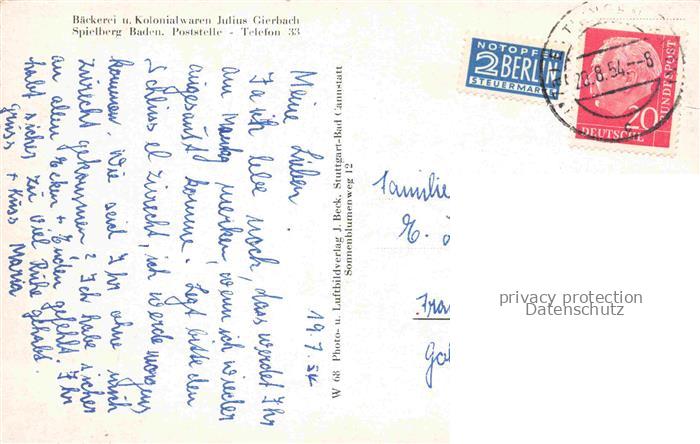 Bäckerei u. Kolonialwaren Julius Gierbach
Spielberg Baden. Poststelle - Telefon 33
19.7.54
Meine Lieben.
Ja ich lebe noch, dass werdet Ihr
am merken, wenn ich wieder
angesaust komme. Legt bitte den
Schlüssel zurecht, ich werde morgens
kommen. Wie seid Ihr ohne mich
zurecht gekommen? Ich habe sicher
an allen Ecken + Enden gefehlt. Ihr
habt sicher zu viel Ruhe gehabt.
Gruss
+ Kuss Maria
W 68 Photo- u. Luftbildverlag J. Beck, Stuttgart-Bad Cannstatt
Sonnenblumenweg 12
NOTOPFER
2 BERLIN
STEUERMARKE
20.8.54.--8
20
DEUTSCHE
BUNDESPOST
Familie
E.
Fra
privacy protection
Datenschutz